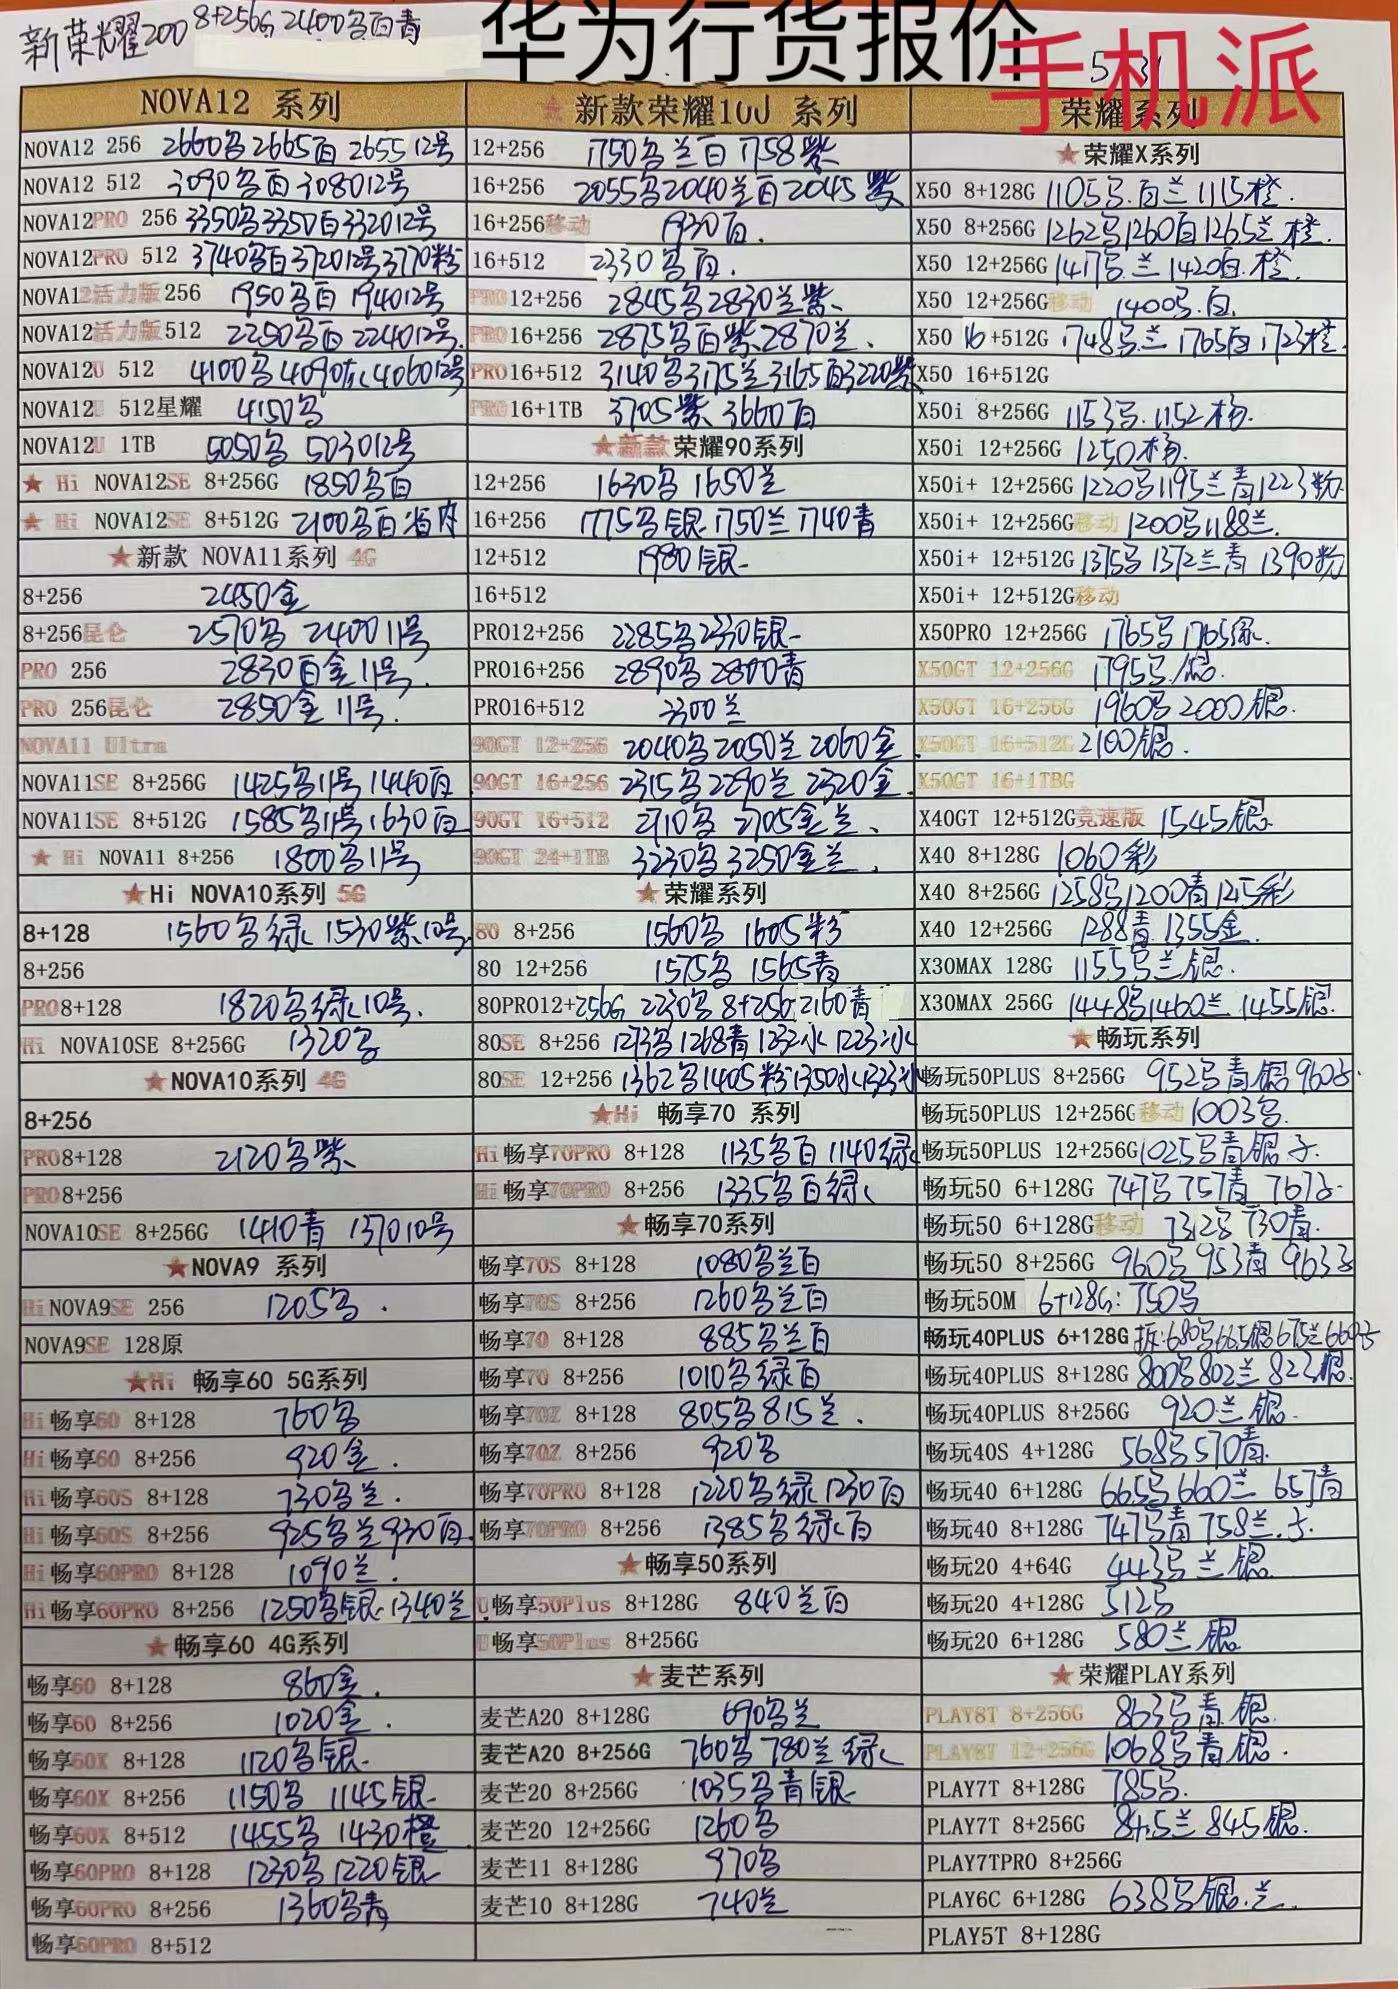 新荣耀200 8+256G 2400乌白青
华为行货报价
手机派
NOVA12 系列
NOVA12 256 2660乌2665白 2655 12号
NOVA12 512 3090乌白3080 12号
NOVA12PRO 256 3350乌3350白3320 12号
NOVA12PRO 512 3740乌白3720 12号3770粉
NOVA12活力版256 1950乌白 1940 12号
NOVA12活力版512 2250乌白 2240 12号.
NOVA12U 512 4100乌4090 4060 12号
NOVA12U 512星耀 4150乌
NOVA12U 1TB 5050乌 5030 12号
★ Hi NOVA12SE 8+256G 1850乌白
★ Hi NOVA12SE 8+512G 2100乌白省内
★新款 NOVA11系列 4G
8+256 2450金
8+256昆仑 2570乌 2400 11号
PRO 256 2830白金11号.
PRO 256昆仑 2850金11号.
NOVA11 Ultra
NOVA11SE 8+256G 1425乌11号1440白
NOVA11SE 8+512G 1585乌11号1630白
★ Hi NOVA11 8+256 1800乌11号
★Hi NOVA10系列 5G
8+128 1560乌绿 1530紫10号
8+256
PRO8+128 1820乌绿10号.
Hi NOVA10SE 8+256G 1320乌
★NOVA10系列 4G
8+256
PRO8+128 2120乌紫
PRO8+256
NOVA10SE 8+256G 1410青 1370 10号
★NOVA9 系列
HiNOVA9SE 256 1205乌.
NOVA9SE 128原
★Hi 畅享60 5G系列
Hi畅享60 8+128 760乌
Hi畅享60 8+256 920金.
Hi畅享60S 8+128 730乌兰.
Hi畅享60S 8+256 925乌兰930白.
Hi畅享60PRO 8+128 1090兰.
Hi畅享60PRO 8+256 1250乌银1340兰.
★畅享60 4G系列
畅享60 8+128 860金.
畅享60 8+256 1020金.
畅享60X 8+128 1120乌银
畅享60X 8+256 1150乌 1145银
畅享60X 8+512 1455乌 1430橙.
畅享60PRO 8+128 1230乌1220银
畅享60PRO 8+256 1360乌青
畅享60PRO 8+512
新款荣耀100 系列
12+256 1750乌兰白1758紫
16+256 2055乌2040兰白2045紫
16+256移动 1930白.
16+512 2330乌白.
PRO12+256 2845乌2830兰紫
PRO16+256 2875乌白紫2870兰.
PRO16+512 3140乌3175兰3165白3220紫
PRO16+1TB 3705紫 3660白
★新款荣耀90系列
12+256 1630乌 1650兰
16+256 1775乌银1750兰1740青
12+512 1980银
16+512
PRO12+256 2285乌2230银
PRO16+256 2890乌 2800青
PRO16+512 3300兰
90GT 12+256 2040乌2050兰2060金
90GT 16+256 2315乌2290兰2320金.
90GT 16+512 2710乌 2705金兰.
90GT 24+1TB 3230乌3250金兰.
★荣耀系列
80 8+256 1560乌 1605粉
80 12+256 1575乌 1565青
80PRO12+256G 2230乌 8+256 2160青
80SE 8+256 1273乌1268青1232水1223水
80SE 12+256 1362乌1405粉1350水1323水
★Hi 畅享70 系列
Hi畅享70PRO 8+128 1135乌白1140绿
Hi畅享70PRO 8+256 1335乌白绿
★畅享70系列
畅享70S 8+128 1080乌兰白
畅享70S 8+256 1260乌兰白
畅享70 8+128 885乌兰白
畅享70 8+256 1010乌绿白
畅享70Z 8+128 805乌815兰.
畅享70Z 8+256 920乌
畅享70PRO 8+128 1220乌绿1230白
畅享70PRO 8+256 1385乌绿白
★畅享50系列
U畅享50Plus 8+128G 840兰白
U畅享50Plus 8+256G
★麦芒系列
麦芒A20 8+128G 690乌兰
麦芒A20 8+256G 760乌780兰绿
麦芒20 8+256G 1035乌青银
麦芒20 12+256G 1260乌
麦芒11 8+128G 970乌
麦芒10 8+128G 740兰
荣耀系列
★荣耀X系列
X50 8+128G 1105乌.白兰1115橙.
X50 8+256G 1262乌1260白1265兰橙.
X50 12+256G 1417乌.兰1420白.橙.
X50 12+256G移动 1400乌.白.
X50 16+512G 1748乌.兰 1765白1723橙.
X50 16+512G
X50i 8+256G 1153乌.1152杨.
X50i 12+256G 1250杨.
X50i+ 12+256G 1220乌1195兰青1223粉
X50i+ 12+256G移动 1200乌1188兰.
X50i+ 12+512G 1375乌1372兰青 1390粉
X50i+ 12+512G移动
X50PRO 12+256G 1765乌1765绿.
X50GT 12+256G 1795乌.银.
X50GT 16+256G 1960乌 2000银.
X50GT 16+512G 2100银.
X50GT 16+1TBG
X40GT 12+512G竞速版 1545银.
X40 8+128G 1060彩
X40 8+256G 1258乌1200青1245彩
X40 12+256G 1288青.1355金.
X30MAX 128G 1155乌兰银.
X30MAX 256G 1448乌1460兰1455银.
★畅玩系列
畅玩50PLUS 8+256G 952乌青银960
畅玩50PLUS 12+256G移动 1003乌.
畅玩50PLUS 12+256G 1025乌青银
畅玩50 6+128G 747乌757青 767
畅玩50 6+128G移动 732乌730青.
畅玩50 8+256G 960乌953青 963
畅玩50M 6+128G:750乌
畅玩40PLUS 6+128G 拆:680乌665银675兰660
畅玩40PLUS 8+128G 800乌802兰 823银.
畅玩40PLUS 8+256G 920兰银.
畅玩40S 4+128G 568乌570青.
畅玩40 6+128G 665乌660兰 657青
畅玩40 8+128G 747乌青758兰.
畅玩20 4+64G 443乌兰银.
畅玩20 4+128G 512乌
畅玩20 6+128G 580兰银
★荣耀PLAY系列
PLAY8T 8+256G 863乌青.银.
PLAY8T 12+256G 1068乌青银.
PLAY7T 8+128G 785乌.
PLAY7T 8+256G 845兰845银.
PLAY7TPRO 8+256G
PLAY6C 6+128G 638乌银.兰.
PLAY5T 8+128G